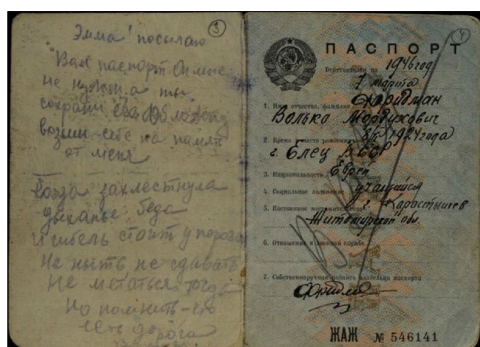 3
Эмма! посылаю
Вам паспорт Он мне
не нужен а ты
сохрани
возьми себе на память
от меня
Когда захлестнула
дыханье, беда
И гибель стоит у порога
Не ныть не сдавать
Не метаться тогда
Но помнить
есть дорога
4
ПАСПОРТ
Действителен по 1946 год
7 марта
1. Имя, отчество, фамилия Фридман
Волько Мордухович
2. Время и место рождения 1924 года
г. Елец
3. Национальность Еврей
4. Социальное положение учащийся
5. Постоянное г. Коростышев
Житомирской обл
6. Отношение к военной службе
7. Собственноручная подпись владельца паспорта
ЖАЖ № 546141